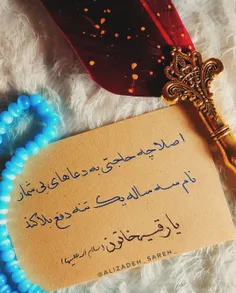 اصلا چه حاجتی به دعاهای بی شمار
نام سه ساله یک تنه دفع بلا کند
یا رقیه خاتون (سلام الله علیها)
@ALIZADEH_SAREH_